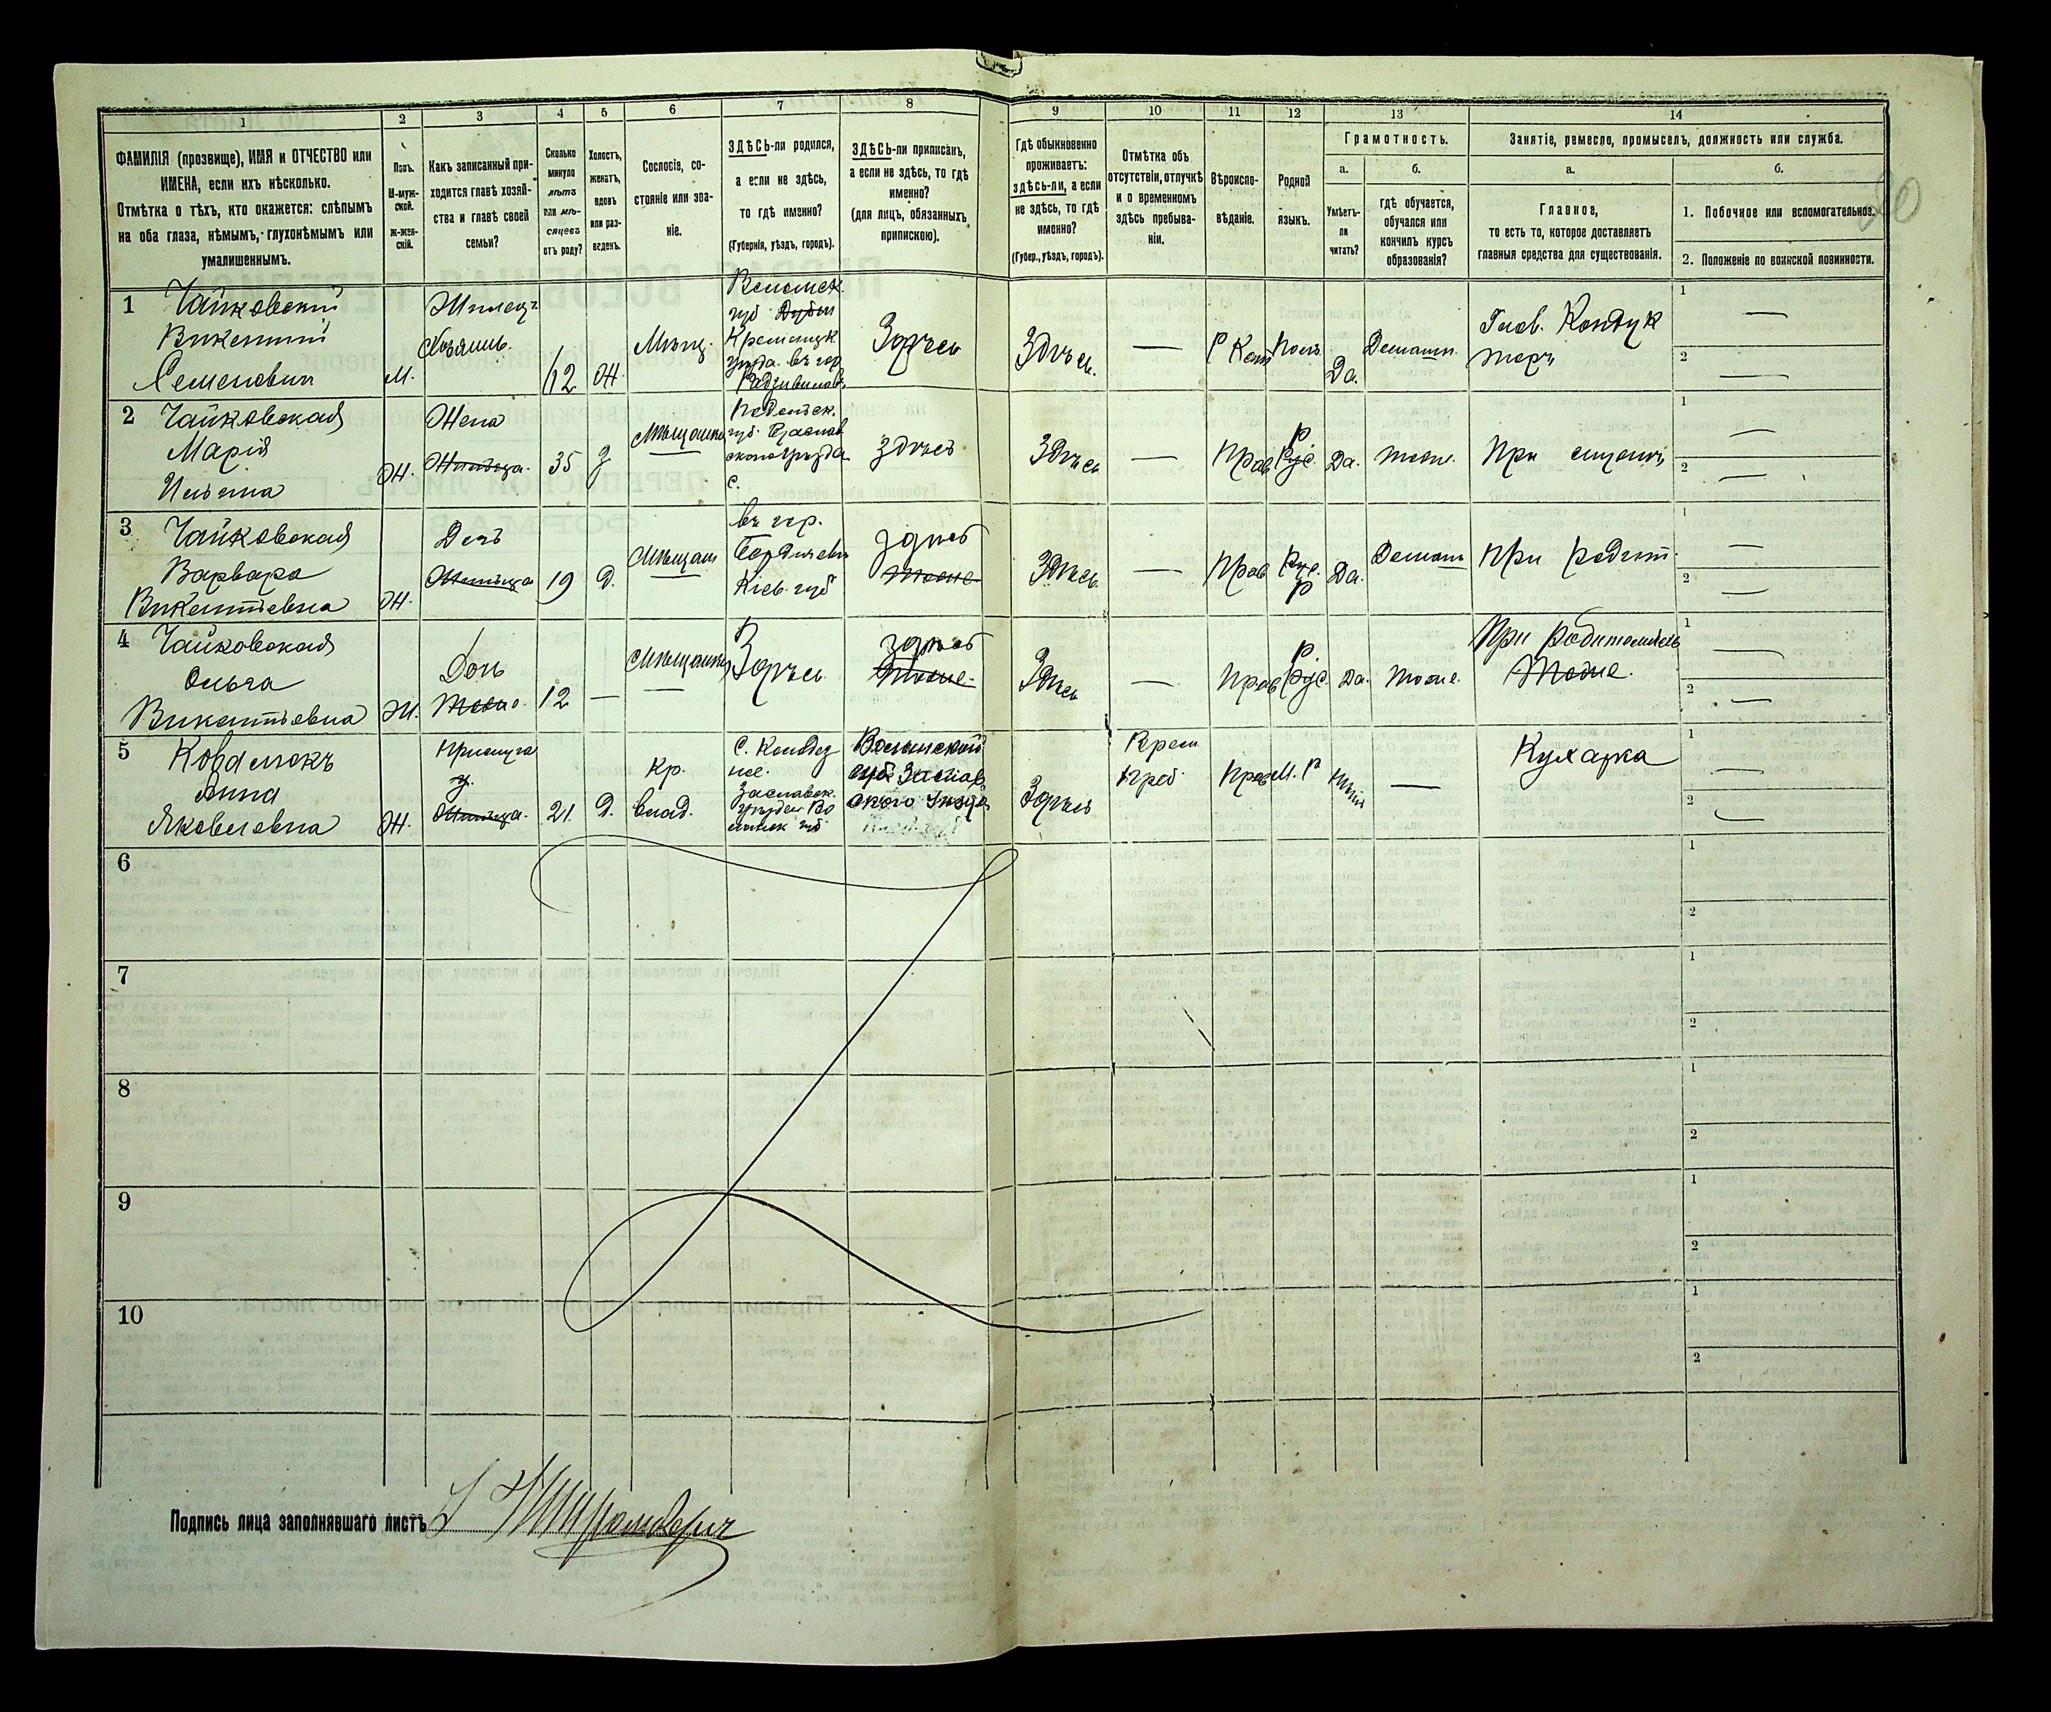 1 2 3 4 5 6 7 8 9 10 11 12 13 14
ФАМИЛІЯ (прозвище), ИМЯ и ОТЧЕСТВО или
ИМЕНА, если ихъ нѣсколько.
Отмѣтка о тѣхъ, кто окажется: слѣпымъ
на оба глаза, нѣмымъ, глухонѣмымъ или
умалишеннымъ.
Полъ.
М-муж-
ской.
Ж-жен-
скій.
Какъ записанный при-
ходится главѣ хозяй-
ства и главѣ своей
семьи?
Сколько
минуло
лѣтъ
или мѣ-
сяцевъ
отъ роду?
Холостъ,
женатъ,
вдовъ
или раз-
веденъ.
Сословіе, со-
стояніе или зва-
ніе.
ЗДѢСЬ-ли родился,
а если не здѣсь,
то гдѣ именно?
(Губернія, уѣздъ, городъ).
ЗДѢСЬ-ли приписанъ,
а если не здѣсь, то гдѣ
именно?
(для лицъ, обязанныхъ
припискою).
Гдѣ обыкновенно
проживаетъ:
здѣсь-ли, а если
не здѣсь, то гдѣ
именно?
(Губер., уѣздъ, городъ).
Отмѣтка объ
отсутствіи, отлучкѣ
и о временномъ
здѣсь пребыва-
ніи.
Вѣроиспо-
вѣданіе.
Родной
языкъ.
Грамотность.
а.
Умѣетъ-
ли
читать?
б.
гдѣ обучается,
обучался или
кончилъ курсъ
образованія?
Занятіе, ремесло, промыселъ, должность или служба.
а.
Главное,
то есть то, которое доставляетъ
главныя средства для существованія.
б.
1. Побочное или вспомогательное.
2. Положеніе по воинской повинности.
1 Чайковскій
Викентій
Семеновичъ
М.
Жилецъ
Хозяинъ
62
Ж.
Мѣщ.
Волынск.
губ. Дубен
Кременецк.
уѣзда въ гор
Радзивиловъ
Здѣсь
Здѣсь.
—
Р Кат
Поль
Да.
Домашн.
Глав. Кондук
торъ
1 —
2 —
2 Чайковская
Марія
Ильина
Ж.
Жена
Жилица.
35
З
Мѣщанка
Подольск.
губ.
уѣзда
с.
Здѣсь
Здѣсь
—
Прав
Р
Рус.
Да.
тоже.
При
1 —
2 —
3 Чайковская
Варвара
Викентіевна
Ж.
Дочь
Жилица
19
Д.
Мѣщан
въ гор.
Бердичевѣ
Кіев. губ
Здѣсь
тоже
Здѣсь
—
Прав
Рус.
Р
Да.
Домашн
При родит.
1 —
2 —
4 Чайковская
Ольга
Викентіевна
Ж.
Дочь
Тоже
12
—
Мѣщанка
Здѣсь
Здѣсь
Тоже.
Здѣсь
—
Прав
Р.
Рус.
Да.
тоже.
При родителяхъ
Тоже.
1 —
2 —
5
Анна
Яковлевна
Ж.
Прислуга
Жилица.
21.
Д.
Кр.
влад.
Заславск.
уѣзда Во
лынск губ
Волынской
губ. Заслав
скаго уѣзда
Здѣсь
Врем
преб.
Прав
М. Р
—
Кухарка
1 —
2 —
6
1
2
7
1
2
8
1
2
9
1
2
10
1
2
Подпись лица заполнявшаго листъ